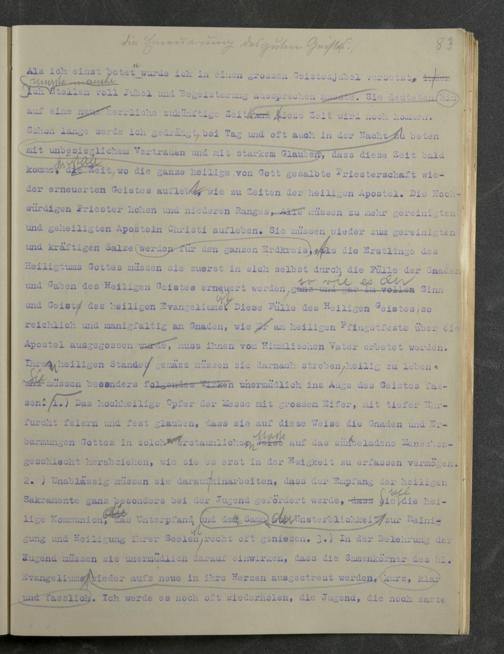 die Erneuerung des guten Geistes. 83
Als ich einst betete wurde ich in einen grossen Geistesjubel versetzt,
musste manche
ich Stellen voll Jubel und Begeisterung aussprechen musste. Sie deuteten hin
auf eine neue herrliche zukünftige Zeit und diese Zeit wird noch kommen.
Schon lange werde ich gedrängt, bei Tag und oft auch in der Nacht zu beten
mit unbesieglichem Vertrauen und mit starkem Glauben, dass diese Zeit bald
komme, die Zeit, wo die ganze heilige von Gott gesalbte Priesterschaft wie-
der erneuerten Geistes auflebt, wie zu Zeiten der heiligen Apostel. Die Hoch-
würdigen Priester hohen und niederen Ranges, alle müssen zu mehr gereinigten
und geheiligten Aposteln Christi aufleben. Sie müssen wieder zum gereinigten
und kräftigen Salze werden für den ganzen Erdkreis, als die Erstlinge des
Heiligtums Gottes müssen sie zuerst in sich selbst durch die Fülle der Gnaden
so wie es der
und Gaben des Heiligen Geistes erneuert werden, ganz und gar im vollen Sinn
und Geist des heiligen Evangeliums. Diese Fülle des Heiligen Geistes, so
reichlich und manigfaltig an Gnaden, wie er am heiligen Pfingstfeste über die
Apostel ausgegossen wurde, muss ihnen vom Himmlischen Vater erbetet werden.
Ihrem heiligen Stande gemäss müssen sie darnach streben, heilig zu leben
Sie müssen besonders folgendes Wirken unermüdlich ins Auge des Geistes fas-
sen: 1.) Das hochheilige Opfer der Messe mit grossem Eifer, mit tiefer Ehr-
furcht feiern und fest glauben, dass sie auf diese Weise die Gnaden und Er-
barmungen Gottes in solch erstaunlichem Maße auf das sündbeladene Menschen-
geschlecht herabziehen, wie sie es erst in der Ewigkeit zu erfassen vermögen.
2.) Unablässig müssen sie daran hinarbeiten, dass der Empfang der heiligen
Sakramente ganz besonders bei der Jugend gefördert werde, dass sie die hei-
lige Kommunion, das Unterpfand und den Same der Unsterblichkeit zur Reinig
gung und Heiligung ihrer Seelen, recht oft geniesen. 3.) In der Belehrung der
Jugend müssen sie unermüdlich darauf einwirken, dass die Samenkörner des hl.
Evangeliums wieder aufs neue in ihre Herzen ausgestreut werden, kurz, klar
und fasslich. Ich werde es noch oft wiederholen, die Jugend, die noch zarte